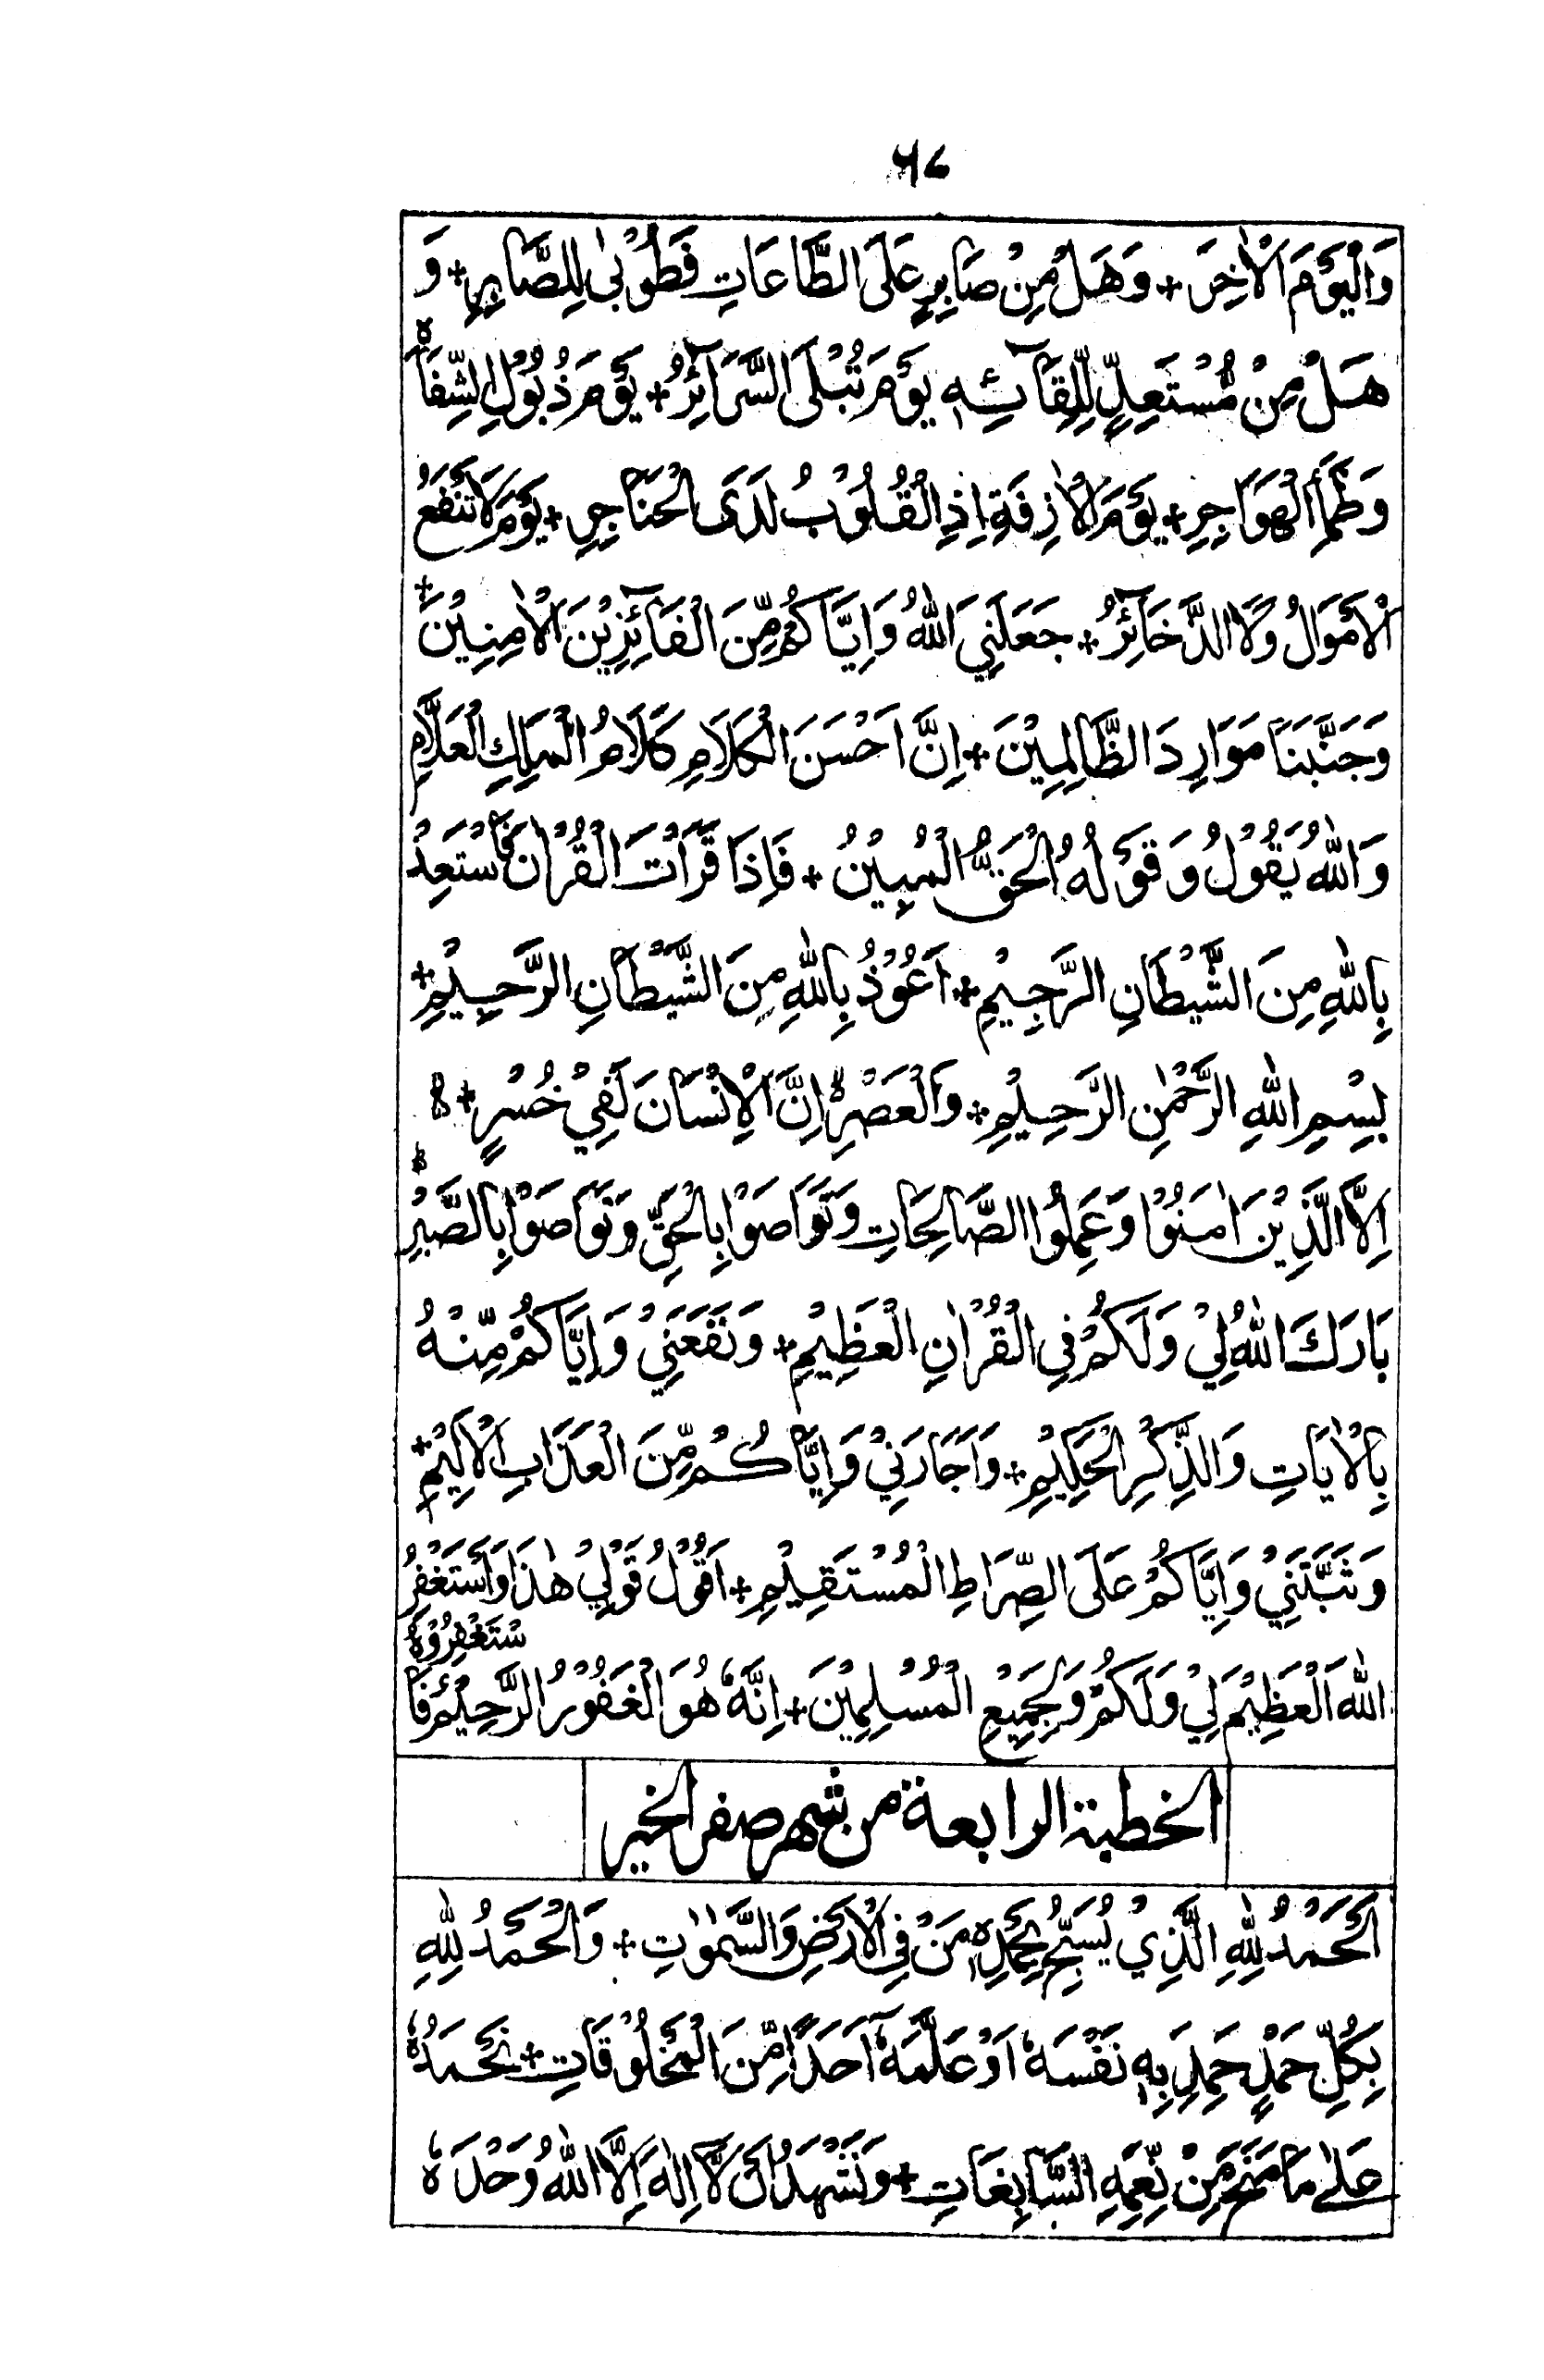 ۶۷
وَالْيَوْمَ الْاٰخِرَ + وَهَلْ مِنْ صَابِرٍ عَلَى الطَّاعَاتِ فَطُوْبٰى لِلصَّابِرِ + وَ
هَلْ مِنْ مُّسْتَعِدٍّ لِّلِقَآئِهٖ يَوْمَ تُبْلَى السَّرَآئِرُ + يَوْمَ ذُبُوْلِ الشِّفَاهِ
وَظَمَأِ الْهَوَاجِرِ + يَوْمَ الْاٰزِفَةِ اِذِ الْقُلُوْبُ لَدَى الْحَنَاجِرِ + يَوْمَ لَا تَنْفَعُ
الْاَمْوَالُ وَلَا الذَّخَآئِرُ + جَعَلَنِيَ اللّٰهُ وَاِيَّاكُمْ مِّنَ الْفَآئِزِيْنَ الْاٰمِنِيْنَ +
وَجَنَّبَنَا مَوَارِدَ الظَّالِمِيْنَ + اِنَّ اَحْسَنَ الْكَلَامِ كَلَامُ الْمَلِكِ الْعَلَّامِ
وَاللّٰهُ يَقُوْلُ وَقَوْلُهُ الْحَقُّ الْمُبِيْنُ + فَاِذَا قَرَاْتَ الْقُرْاٰنَ فَاسْتَعِذْ
بِاللّٰهِ مِنَ الشَّيْطَانِ الرَّجِيْمِ + اَعُوْذُ بِاللّٰهِ مِنَ الشَّيْطَانِ الرَّجِيْمِ +
بِسْمِ اللّٰهِ الرَّحْمٰنِ الرَّحِيْمِ + وَالْعَصْرِ ۙ اِنَّ الْاِنْسَانَ لَفِيْ خُسْرٍ + ۙ
اِلَّا الَّذِيْنَ اٰمَنُوْا وَعَمِلُوا الصَّالِحَاتِ وَتَوَاصَوْا بِالْحَقِّ وَتَوَاصَوْا بِالصَّبْرِ
بَارَكَ اللّٰهُ لِيْ وَلَكُمْ فِي الْقُرْاٰنِ الْعَظِيْمِ + وَنَفَعَنِيْ وَاِيَّاكُمْ مِّنْهُ
بِالْاٰيَاتِ وَالذِّكْرِ الْحَكِيْمِ + وَاَجَارَنِيْ وَاِيَّاكُمْ مِّنَ الْعَذَابِ الْاَلِيْمِ +
وَثَبَّتَنِيْ وَاِيَّاكُمْ عَلَى الصِّرَاطِ الْمُسْتَقِيْمِ + اَقُوْلُ قَوْلِيْ هٰذَا وَاَسْتَغْفِرُ
اللّٰهَ الْعَظِيْمَ لِيْ وَلَكُمْ وَلِجَمِيْعِ الْمُسْلِمِيْنَ + اِنَّهٗ هُوَ الْغَفُوْرُ الرَّحِيْمُ فَاسْتَغْفِرُوْهُ
الخطبة الرابعة من شهر صفر الخير
اَلْحَمْدُ لِلّٰهِ الَّذِيْ يُسَبِّحُ بِحَمْدِهٖ مَنْ فِي الْاَرْضِ وَالسَّمٰوٰتِ + وَالْحَمْدُ لِلّٰهِ
بِكُلِّ حَمْدٍ حَمِدَ بِهٖ نَفْسَهٗ اَوْ عَلَّمَهٗٓ اَحَدًا مِّنَ الْمَخْلُوْقَاتِ + نَحْمَدُهٗ
عَلٰى مَا مَنَحَ مِنْ نِّعَمِهِ السَّابِغَاتِ + وَنَشْهَدُ اَنْ لَّآ اِلٰهَ اِلَّا اللّٰهُ وَحْدَهٗ